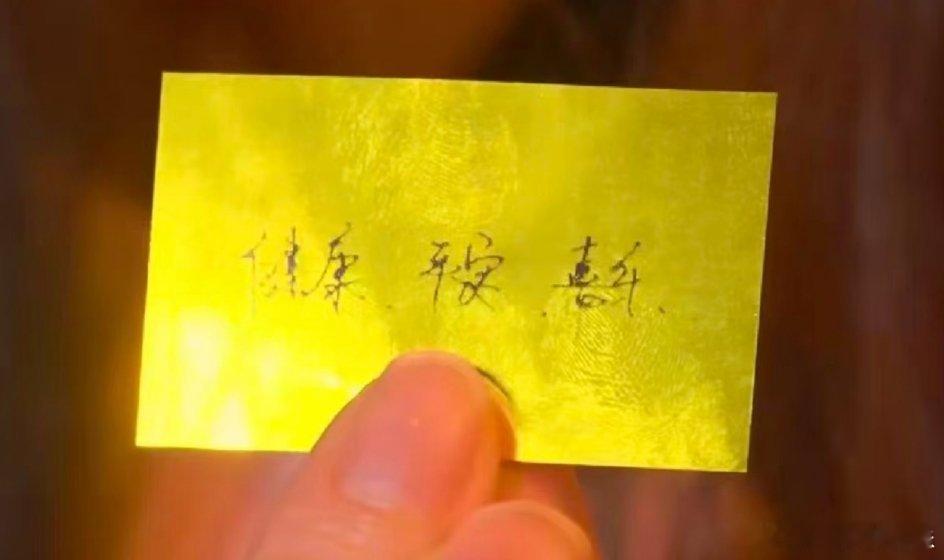 健康、平安、喜乐.